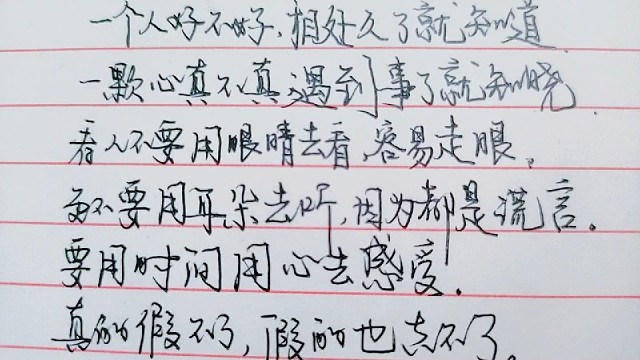 一个人好不好,相处久了就知道.
一颗心真不真遇到事了就知晓.
看人不要用眼睛去看,容易走眼.
更不要用耳朵去听,因为都是谎言.
要用时间用心去感受.
真的假不了,假的也真不了.